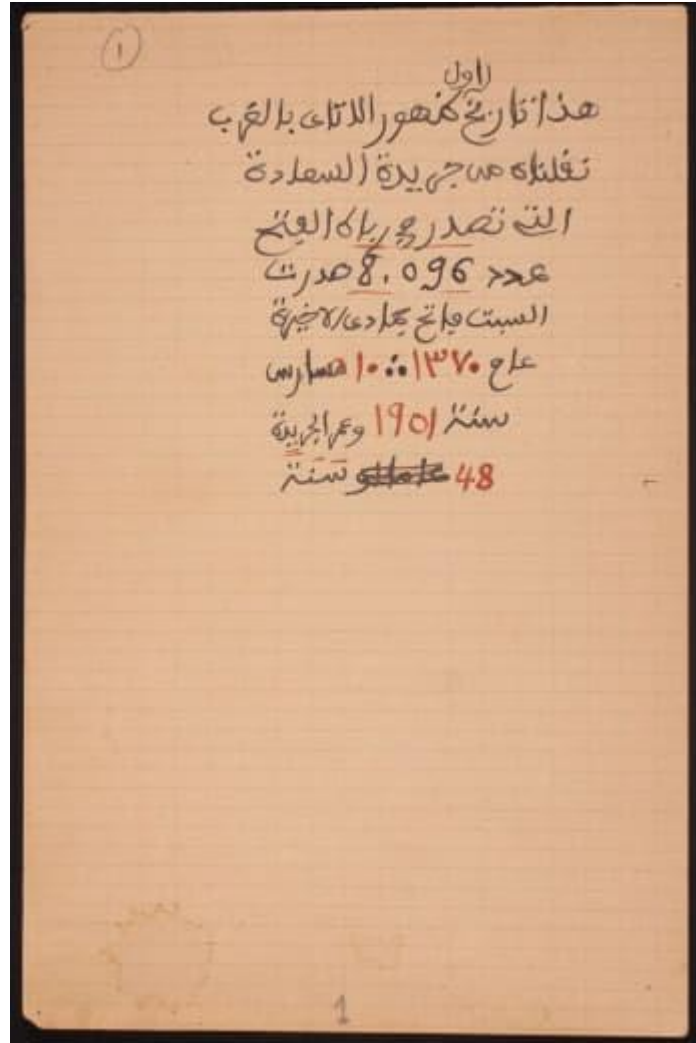 ١
اول
هذا تاريخ ظهور الاتاى بالمغرب
نقلناه من جريدة السعادة
التى تصدر في رباط الفتح
عدد 8.096 صدرت
السبت فاتح جمادى الاخيرة
عام ١٣٧٠ ∴ ١٠ مارس
سنة 1951 وعمر الجريدة
48 سنة
1